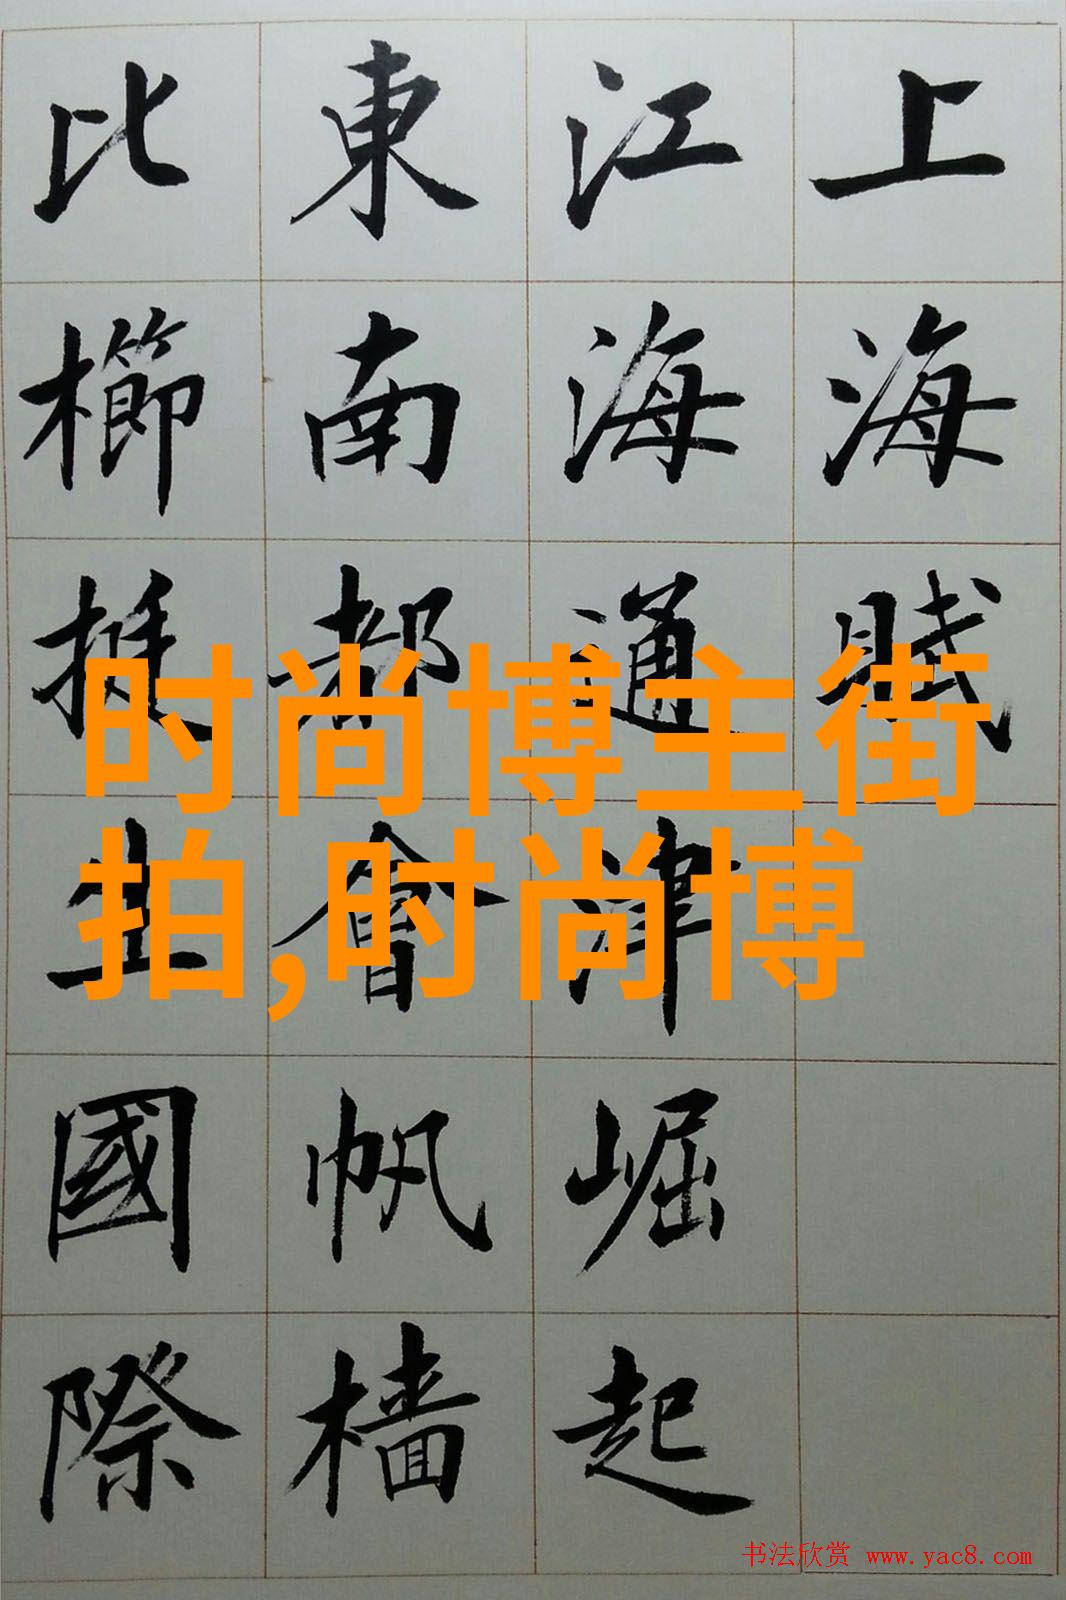 上海賦
江海通津崛起
東南都會帆檣
比櫛挺立國際
时尚博主街
拍,时尚博
书法欣赏 www.yac8.com